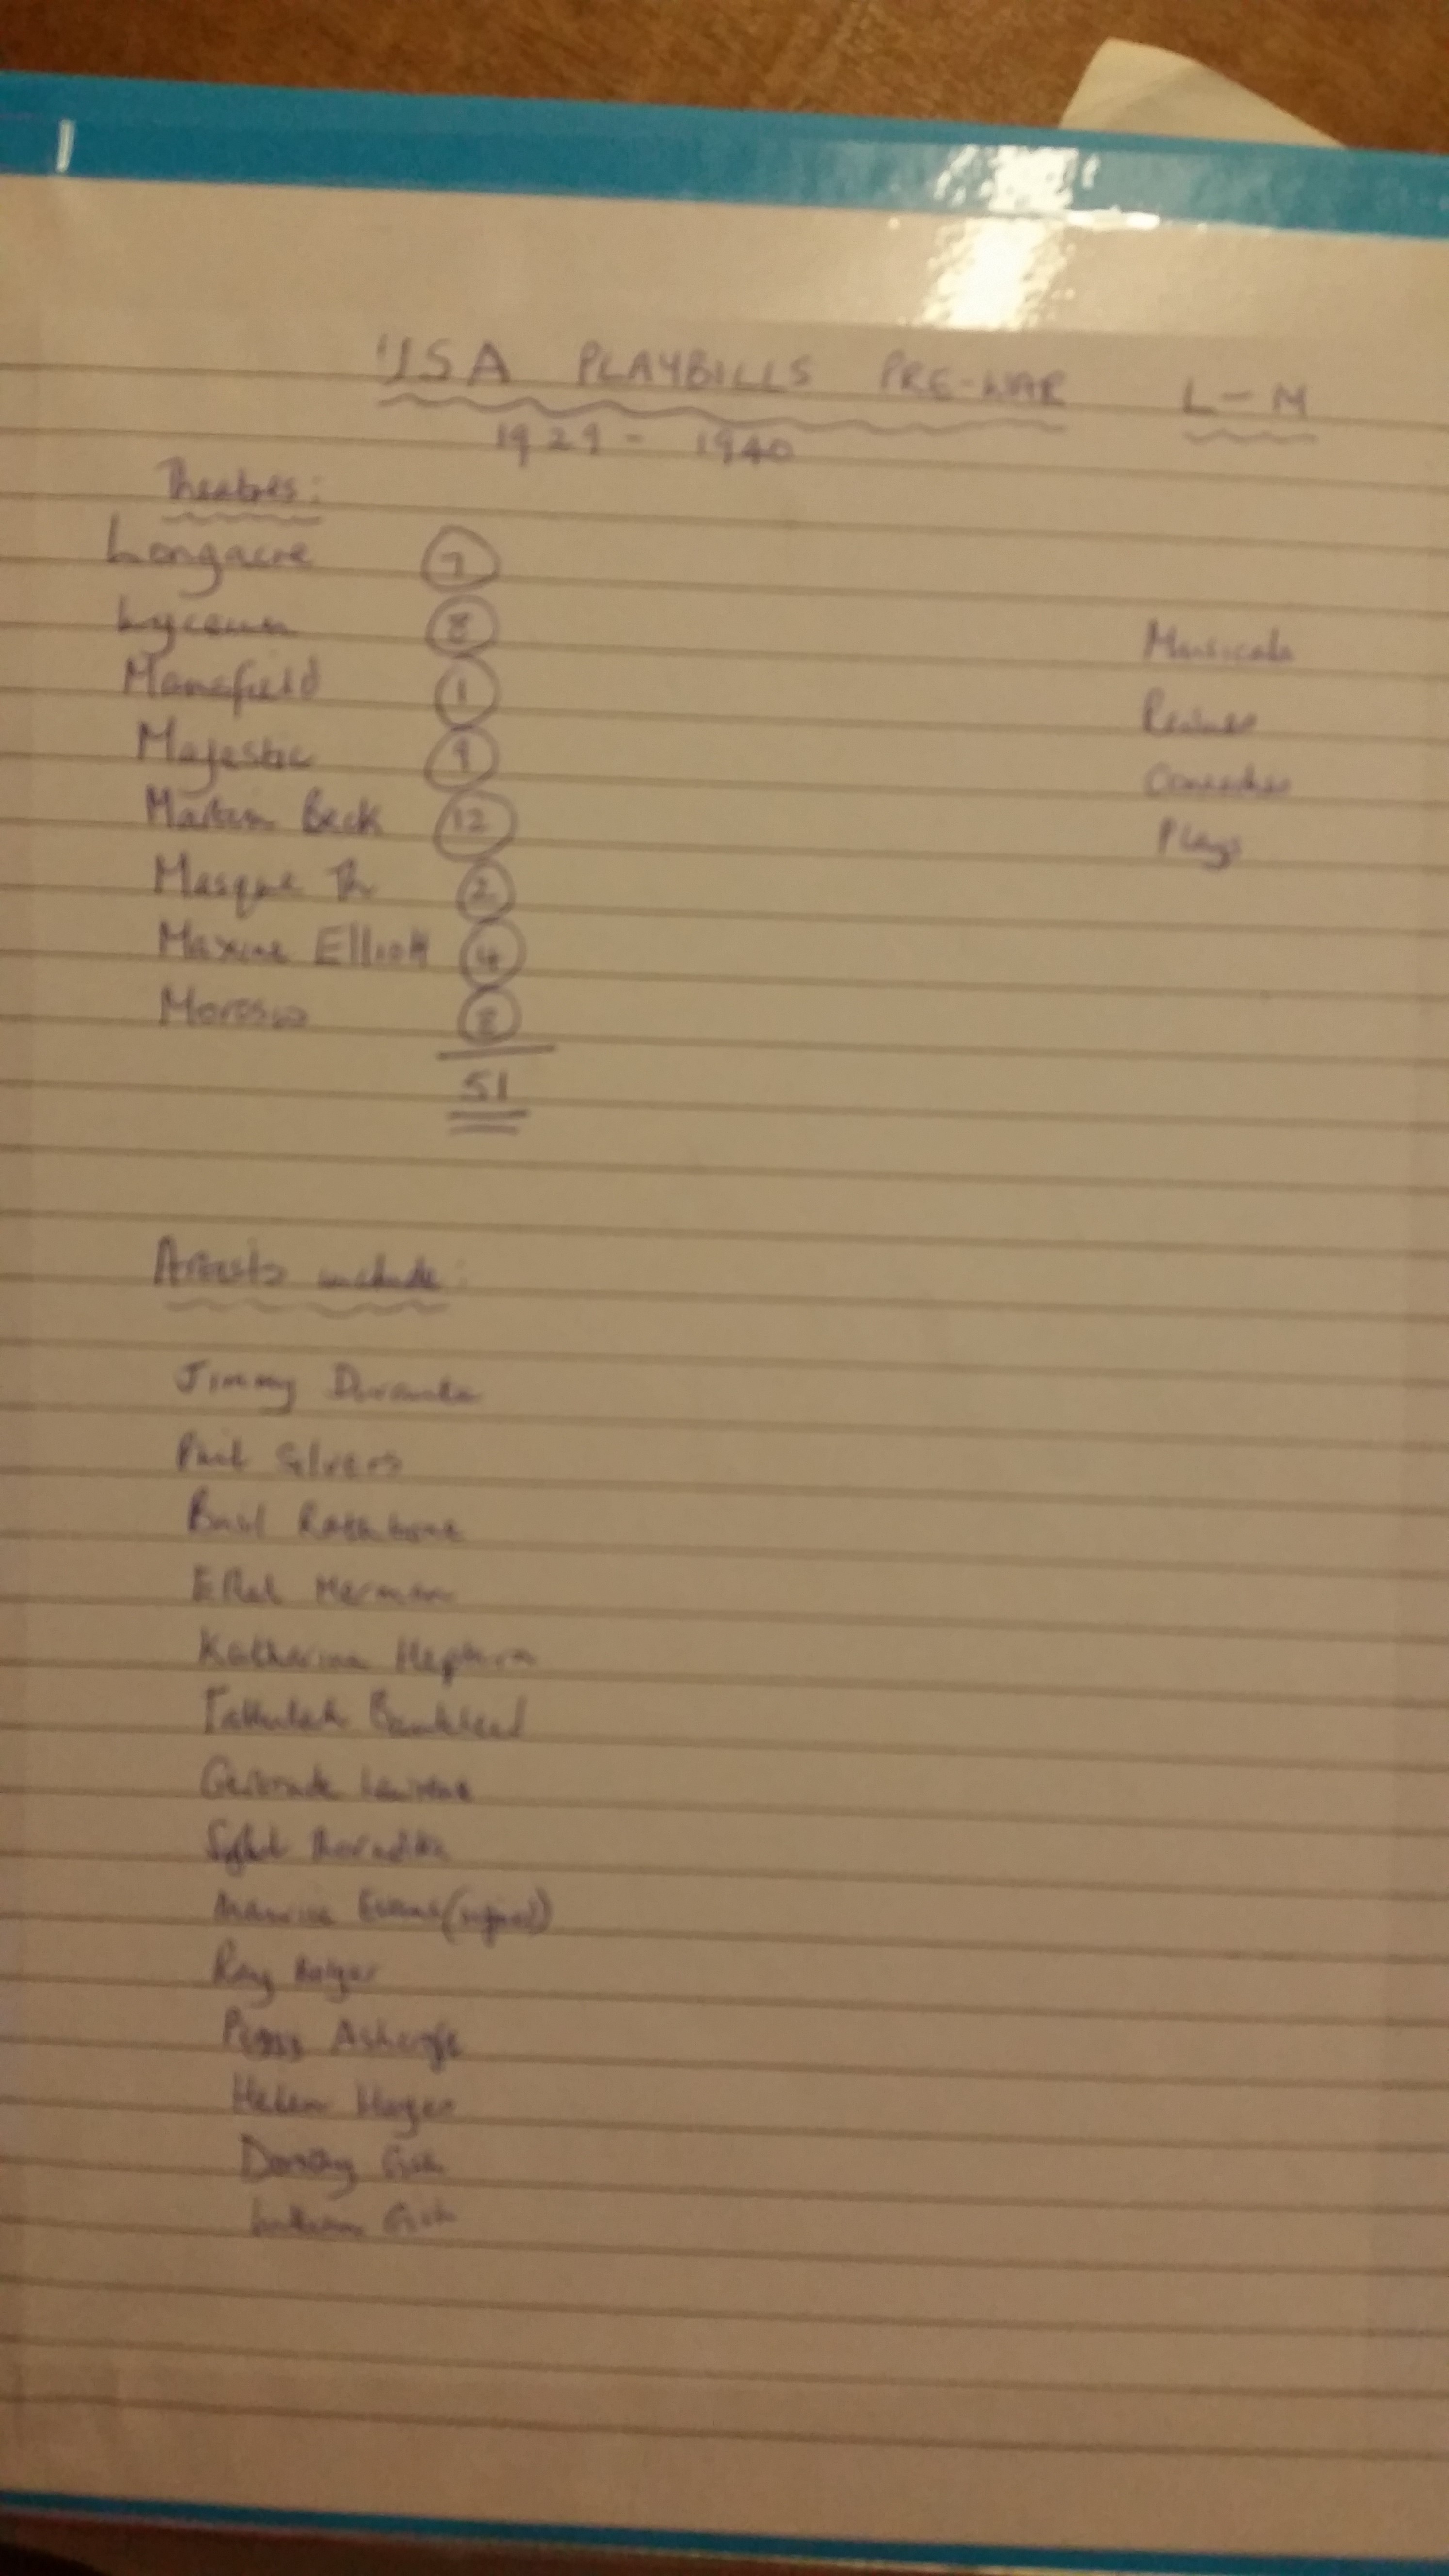 USA PLAYBILLS PRE-WAR L-M
1929 - 1940
Theatres:
Longacre 7
Lyceum 8
Mansfield 1
Majestic 9
Martin Beck 12
Masque Th 2
Maxine Elliott 4
Morosco 8
51
Musicals
Revues
Comedies
Plays
Artists include:
Jimmy Durante
Phil Silvers
Basil Rathbone
Ethel Merman
Katharine Hepburn
Tallulah Bankhead
Gertrude Lawrence
Sybil Thorndike
Maurice Evans (signed)
Ray Bolger
Peggy Ashcroft
Helen Hayes
Dorothy Gish
Lillian Gish